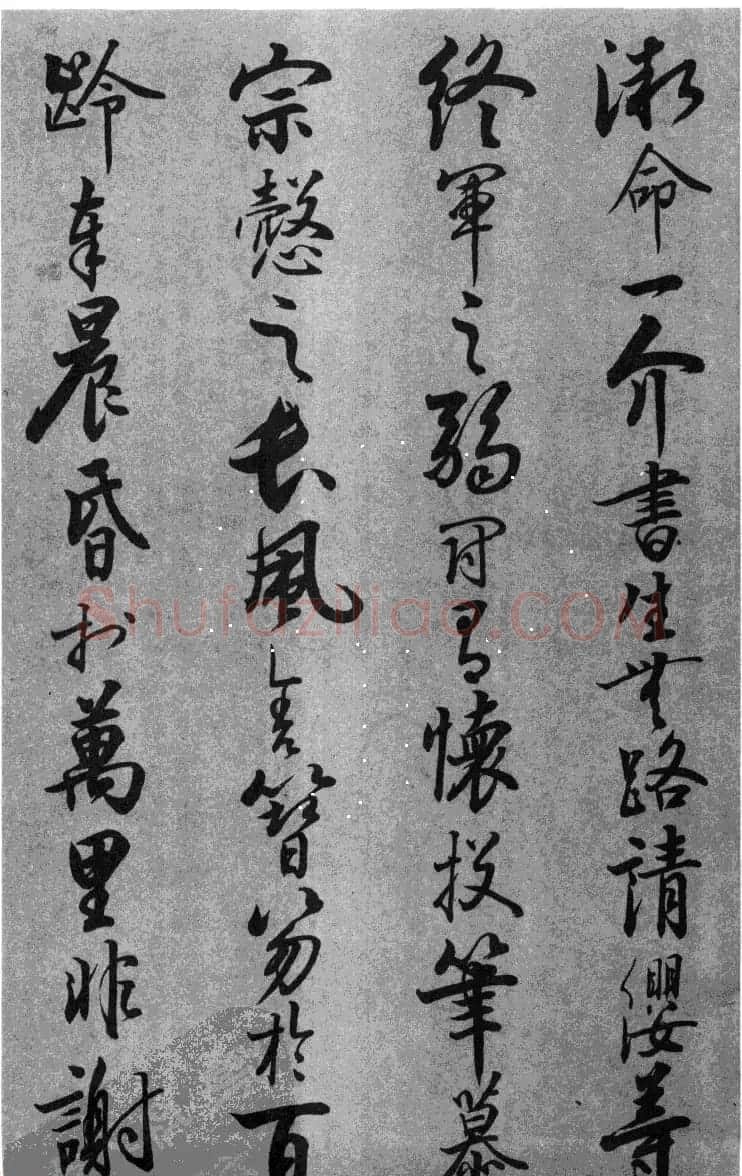 微命一介書生無路請纓等
終軍之弱冠有懷投筆慕
宗慤之長風舍簪笏於百
齡奉晨昏於萬里非謝
Shufaziliao.COM